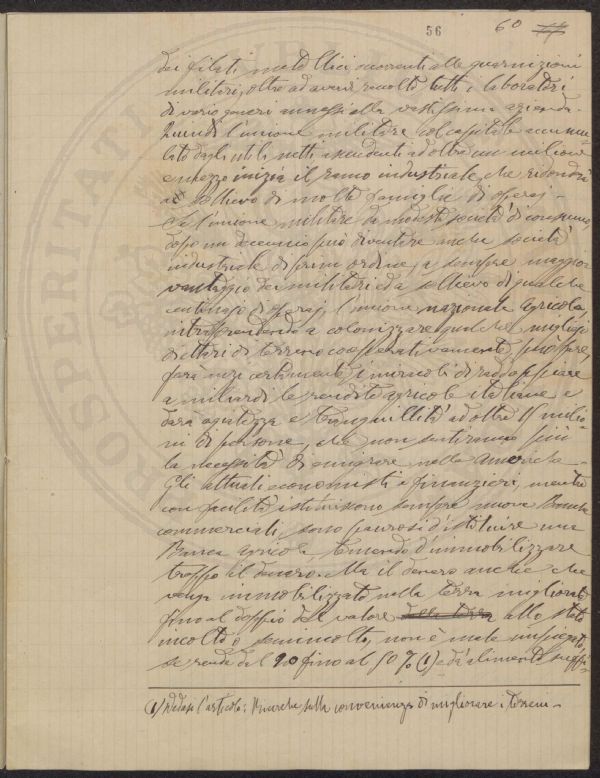 56
60
dei filati metallici occorrenti alle guarnizioni
militari, oltre ad avervi raccolto tutti i laboratori
di vario genere annessi alla vastissima azienda.
Quindi l'unione militare col capitale accumu-
lato dagli utili netti ascendenti ad oltre un milione
e mezzo inizia il ramo industriale che ridonderà
a sollievo di molte famiglie di operaj.
Se l'unione militare da modesta società di consumo,
dopo un decennio può diventare anche società
industriale di primo ordine, a sempre maggior
vantaggio dei militari ed a sollievo di qualche
centinajo d'operaj, l'unione nazionale agricola,
intraprendendo a colonizzare qualche migliajo
di ettari di terreno cooperativamente,
farà certamente i miracoli di raddoppiare
a miliardi le rendite agricole italiane e
darà agiatezza e tranquillità ad oltre milio-
ni di persone, che non sentiranno più
la necessità di emigrare nelle Americhe.
Gli attuali economisti e finanzieri, mentre
con facilità istituiscono sempre nuove Banche
commerciali, sono paurosi d'istituire una
Banca agricola, temendo d'immobilizzare
troppo il denaro. Ma il denaro anche che
venga immobilizzato nella terra migliorata
fino al doppio del valore della terra allo stato
incolto o semincolto, non è male impiegato,
se rende dal 20 fino al 50 % (1) e dà alimento
(1) Vedasi l'articolo: Ricerche sulla convenienza di migliorare i terreni.